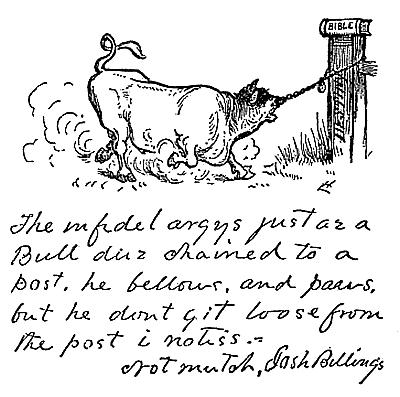 BIBLE
The infidel argys just az a
Bull duz chained to a
post. he bellows, and paws,
but he dont git loose from
the post i notiss.=
Not mutch, Josh Billings